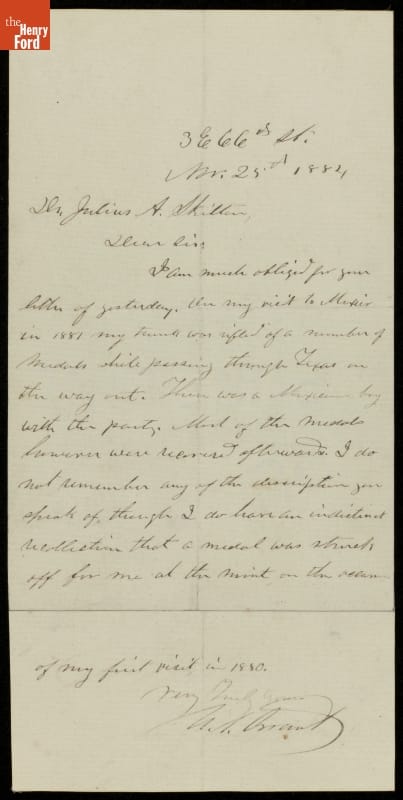 the
Henry
Ford
3 E 66th St.
Nov. 25th 1884
Dr. Julius A. Skilton,
Dear Sir;
I am much obliged for your
letter of yesterday. On my visit to Mexico
in 1881 my trunk was rifled of a number of
medals while passing through Texas on
the way out. There was a Mexican boy
with the party. Most of the medals
however were recovered afterwards. I do
not remember any of the description you
speak of, though I do have an indistinct
recollection that a medal was struck
off for me at the mint, on the
of my first visit, in 1880.
Very Truly yours
U. S. Grant